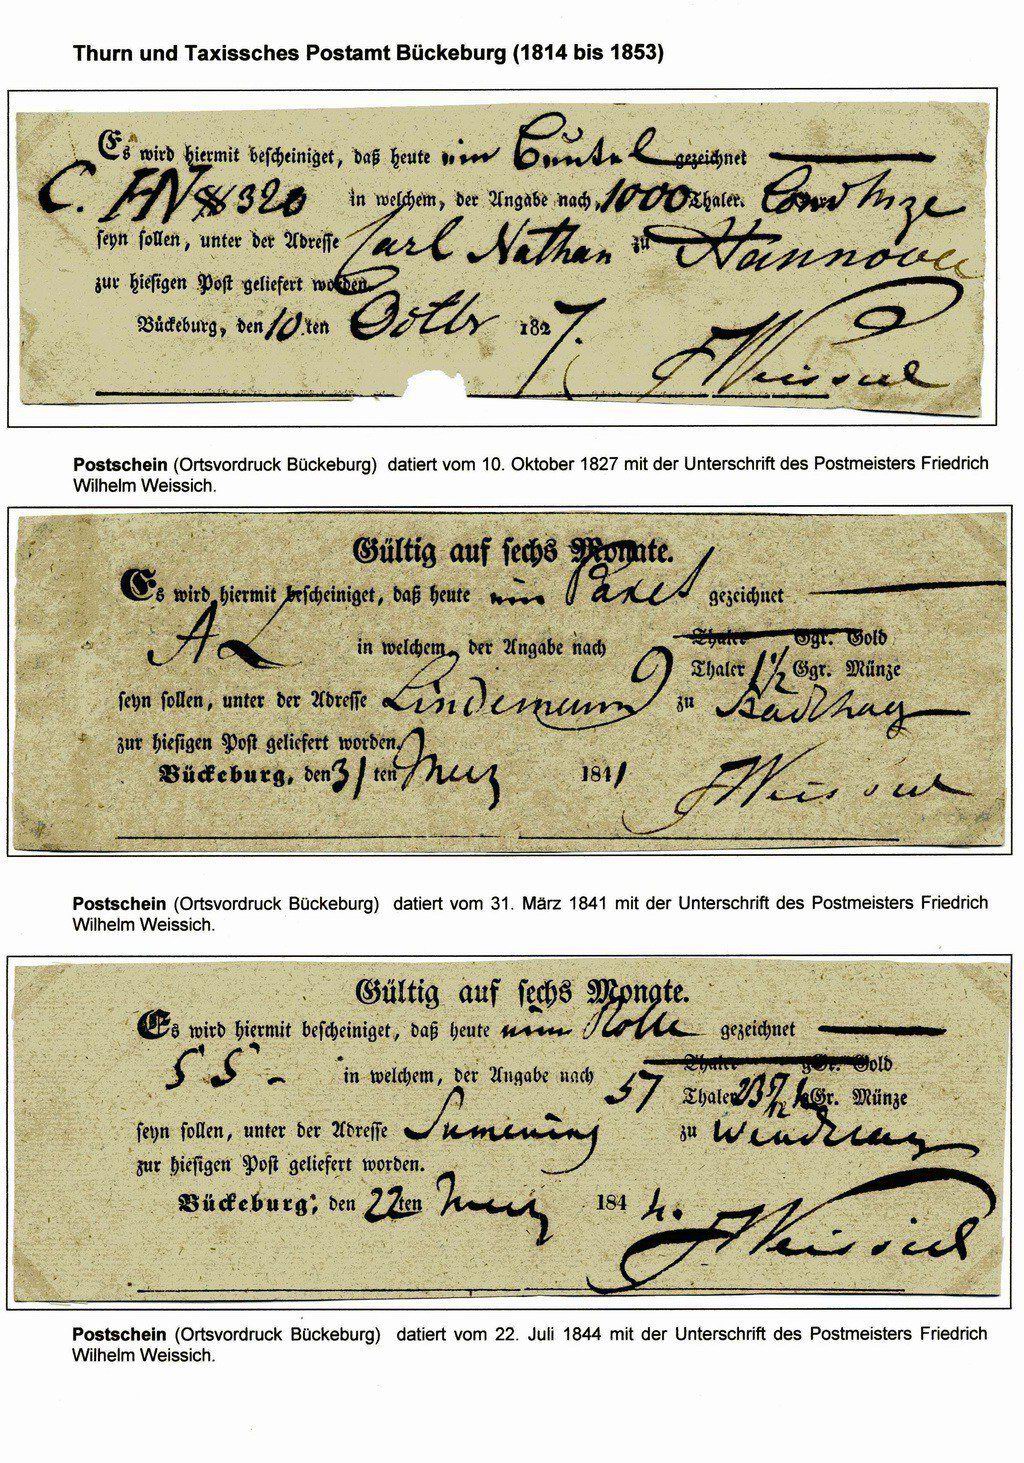 Thurn und Taxissches Postamt Bückeburg (1814 bis 1853)
Es wird hiermit bescheiniget, daß heute ein Beutel gezeichnet
C. HN 320 in welchem, der Angabe nach, 1000 Thaler.
seyn sollen, unter der Adresse Carl Nathan zu Hannover
zur hiesigen Post geliefert worden.
Bückeburg, den 10.ten Octbr 1827.
FWeissich
Postschein (Ortsvordruck Bückeburg) datiert vom 10. Oktober 1827 mit der Unterschrift des Postmeisters Friedrich
Wilhelm Weissich.
Gültig auf sechs Monate.
Es wird hiermit bescheiniget, daß heute ein Paket gezeichnet
AL in welchem, der Angabe nach Thaler Ggr. Gold
9 Thaler 1½ Ggr. Münze
seyn sollen, unter der Adresse Lindemann zu Stadthag
zur hiesigen Post geliefert worden.
Bückeburg, den 31 ten Merz 1841
FWeissich
Postschein (Ortsvordruck Bückeburg) datiert vom 31. März 1841 mit der Unterschrift des Postmeisters Friedrich
Wilhelm Weissich.
Gültig auf sechs Monate.
Es wird hiermit bescheiniget, daß heute eine Rolle gezeichnet
SS - in welchem, der Angabe nach Thaler gGr. Gold
57 Thaler gGr. Münze
seyn sollen, unter der Adresse zu
zur hiesigen Post geliefert worden.
Bückeburg, den 22ten 1844.
FWeissich
Postschein (Ortsvordruck Bückeburg) datiert vom 22. Juli 1844 mit der Unterschrift des Postmeisters Friedrich
Wilhelm Weissich.